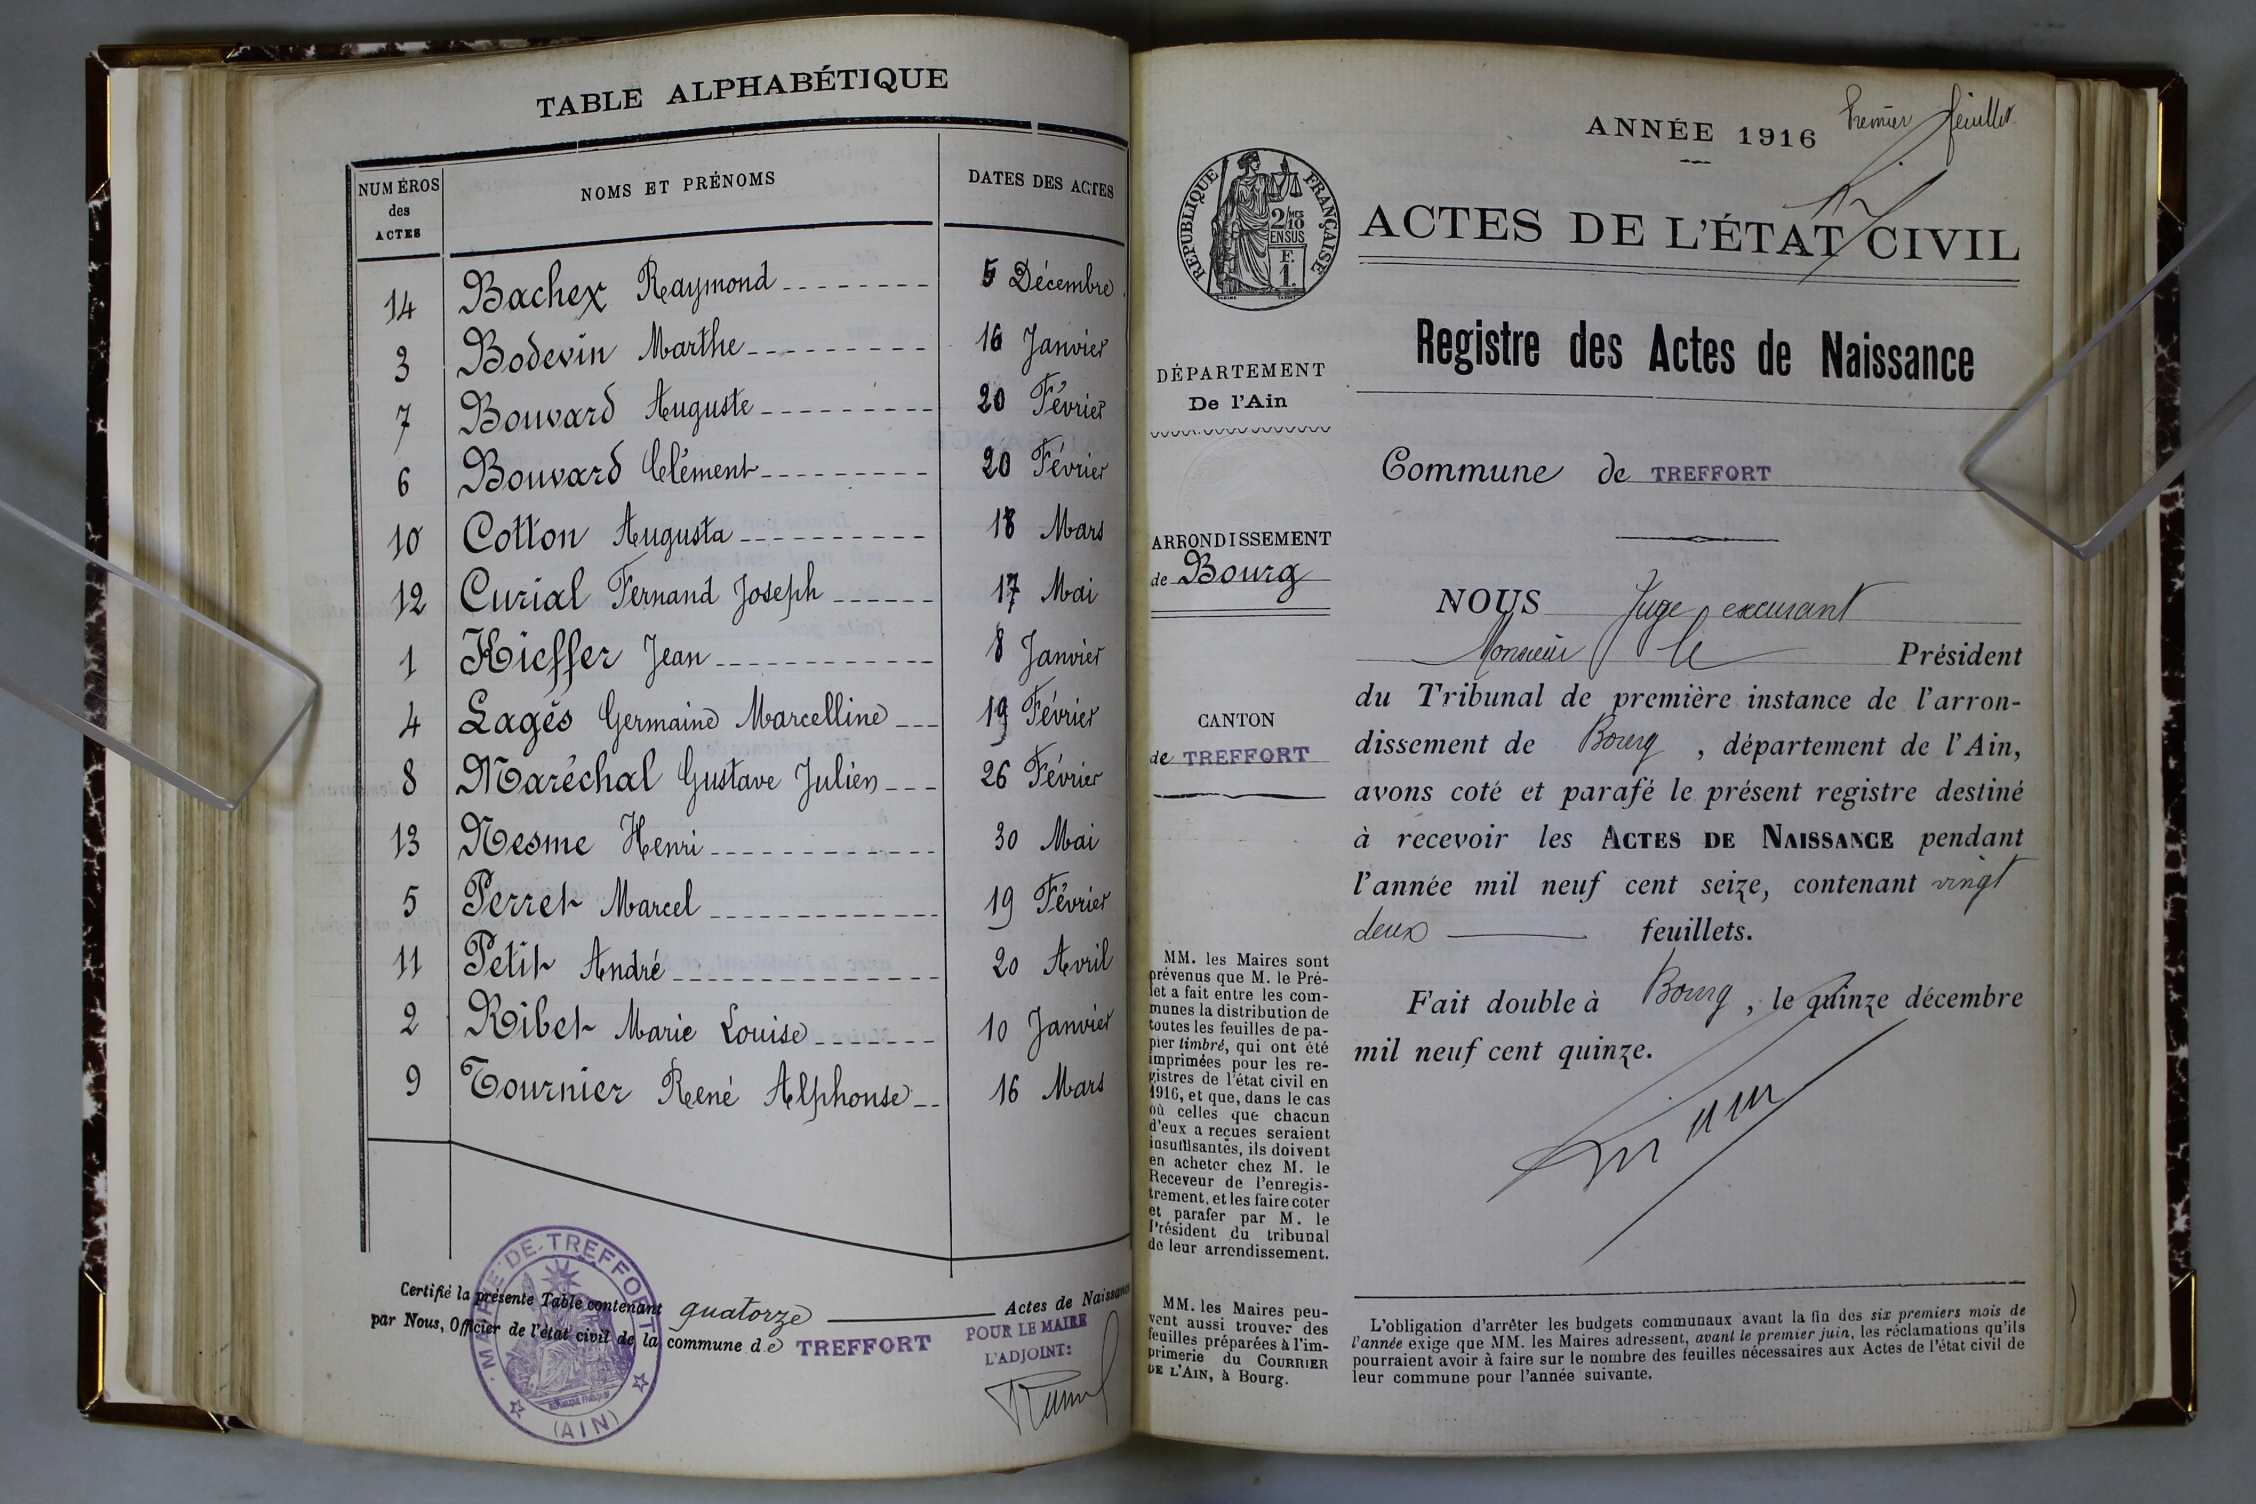 TABLE ALPHABÉTIQUE
NUMÉROS
des
ACTES
NOMS ET PRÉNOMS
DATES DES ACTES
14 Bachex Raymond 5 Décembre
3 Bodevin Marthe 16 Janvier
7 Bouvard Auguste 20 Février
6 Bouvard Clément 20 Février
10 Cotton Augusta 18 Mars
12 Curial Fernand Joseph 17 Mai
1 Kieffer Jean 8 Janvier
4 Lagés Germaine Marcelline 19 Février
8 Maréchal Gustave Julien 26 Février
13 Nesme Henri 30 Mai
5 Perret Marcel 19 Février
11 Petit André 20 Avril
2 Ribet Marie Louise 10 Janvier
9 Tournier René Alphonse 16 Mars
Certifié la présente Table contenant quatorze Actes de Naissance
par Nous, Officier de l'état civil de la commune de TREFFORT
POUR LE MAIRE
L'ADJOINT:
MAIRIE DE TREFFORT
(AIN)
ANNÉE 1916
Premier feuillet
RÉPUBLIQUE FRANÇAISE
2/10 MES
EN SUS
F.
1.
ACTES DE L'ÉTAT CIVIL
Registre des Actes de Naissance
DÉPARTEMENT
De l'Ain
Commune de TREFFORT
ARRONDISSEMENT
de Bourg
CANTON
de TREFFORT
NOUS Juge excusant
Monsieur le Président
du Tribunal de première instance de l'arron-
dissement de Bourg, département de l'Ain,
avons coté et parafé le présent registre destiné
à recevoir les ACTES DE NAISSANCE pendant
l'année mil neuf cent seize, contenant vingt
deux feuillets.
Fait double à Bourg, le quinze décembre
mil neuf cent quinze.
MM. les Maires sont
prévenus que M. le Pré-
fet a fait entre les com-
munes la distribution de
toutes les feuilles de pa-
pier timbré, qui ont été
imprimées pour les re-
gistres de l'état civil en
1916, et que, dans le cas
où celles que chacun
d'eux a reçues seraient
insuffisantes, ils doivent
en acheter chez M. le
Receveur de l'enregis-
trement, et les faire coter
et parafer par M. le
Président du tribunal
de leur arrondissement.
MM. les Maires peu-
vent aussi trouver des
feuilles préparées à l'im-
primerie du COURRIER
DE L'AIN, à Bourg.
L'obligation d'arrêter les budgets communaux avant la fin des six premiers mois de
l'année exige que MM. les Maires adressent, avant le premier juin, les réclamations qu'ils
pourraient avoir à faire sur le nombre des feuilles nécessaires aux Actes de l'état civil de
leur commune pour l'année suivante.